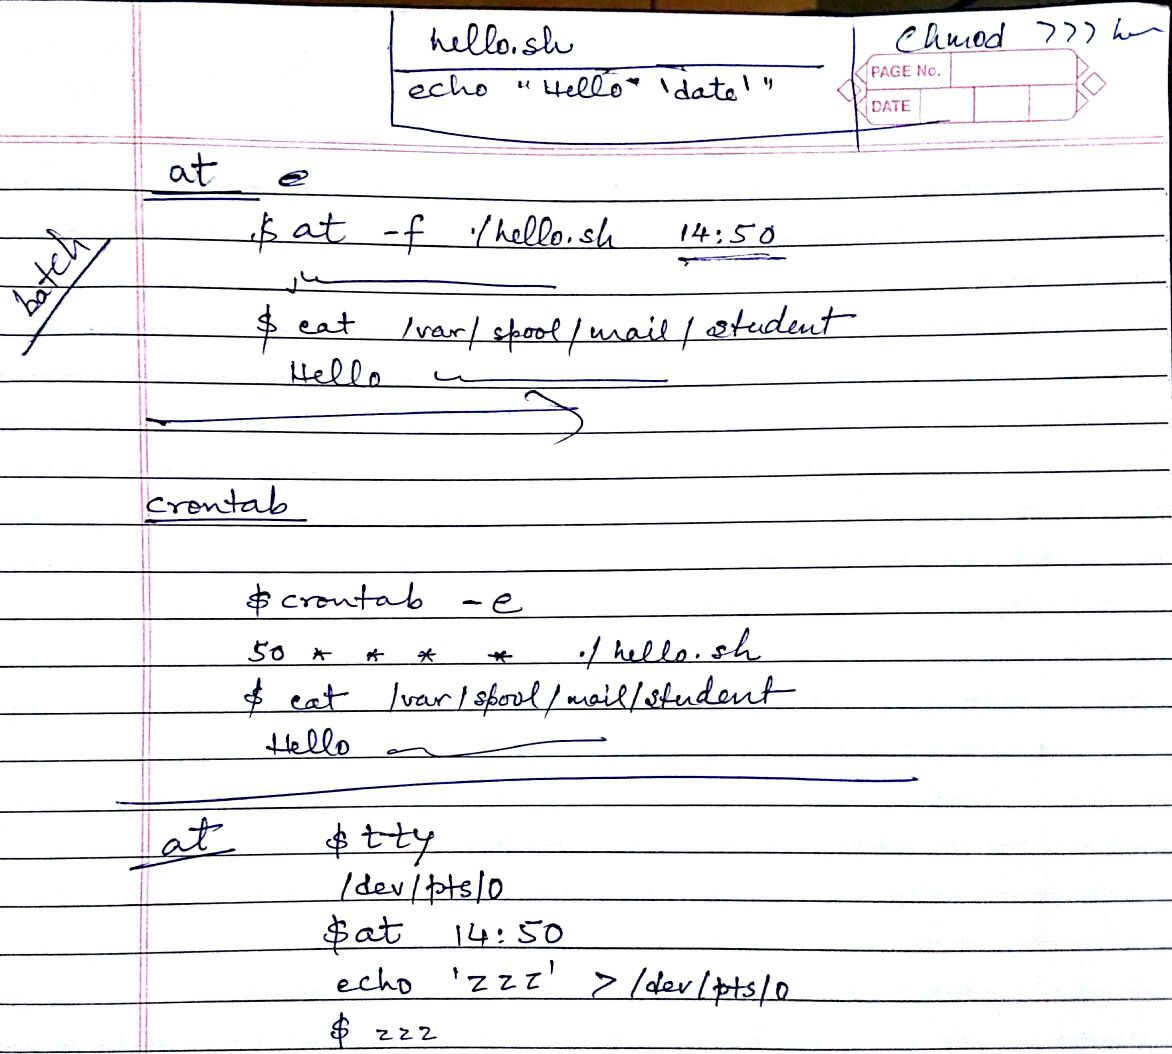 hello.sh
echo "Hello" 'date'"
Chmod 777
PAGE No.
DATE
at
$ at -f ./hello.sh 14:50
batch
$ cat /var/spool/mail/student
Hello
crontab
$ crontab -e
50 * * * * ./hello.sh
$ cat /var/spool/mail/student
Hello
at $ tty
/dev/pts/0
$ at 14:50
echo 'zzz' > /dev/pts/0
$ zzz